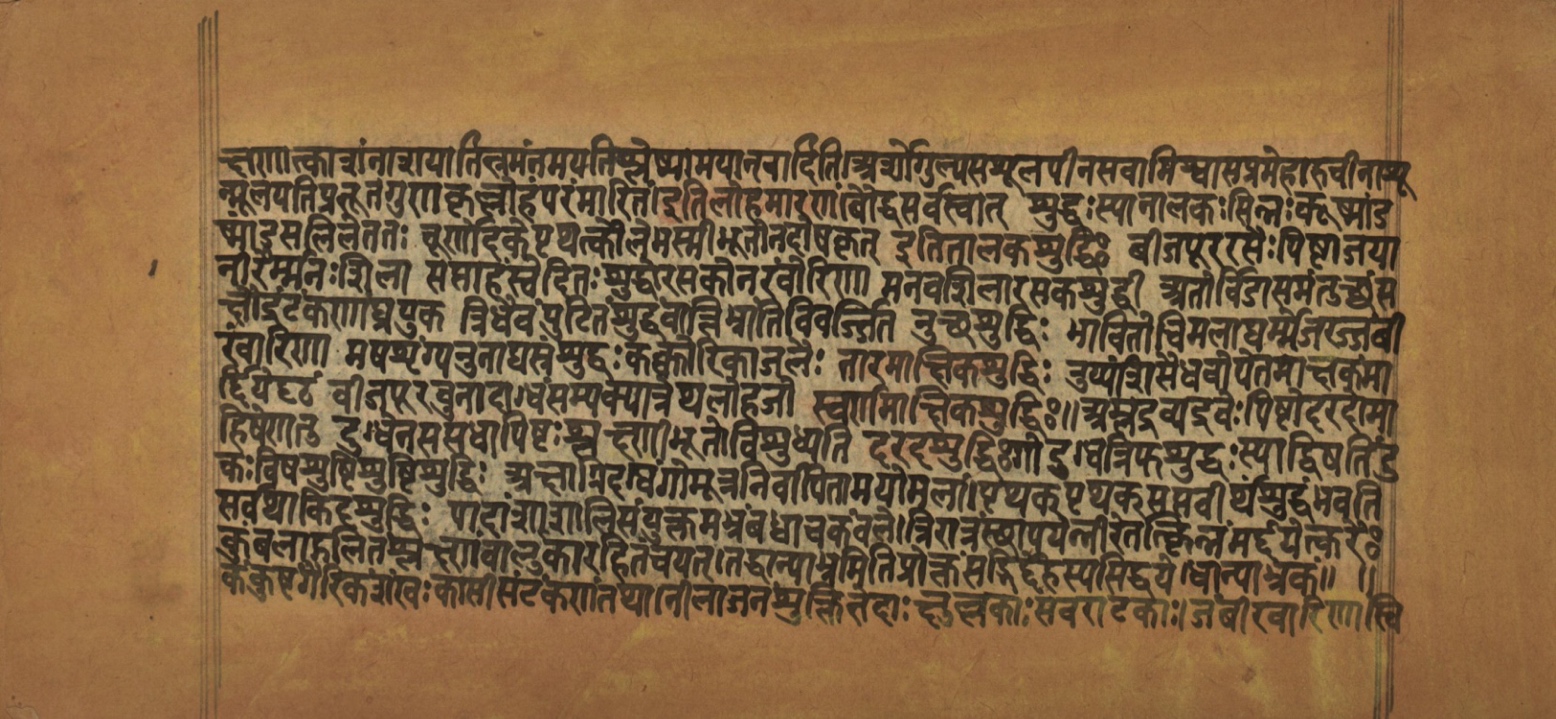 क्षणात्कारांनाशयार्तित्वमंतमयतिश्लेष्मामयानवार्दिति।अर्शोगुल्मसशूलपीनसवामिश्वासप्रमेहारुचीनाश्पू
न्मूलयतिप्रभूतगुणकृल्लौहंपरंमारितं।इतिलोहमारणं।बोद्धसर्वस्वात् शुद्धःस्यानालकःसित्नःकूष्मांड
ष्मांडसलिलेततः चूर्णोदकेपृथक्तैलेभस्मीभूतोनदोषकृत् इतितालकशुद्धिः बीजपूररसैःपिष्टाजया
नीरेर्म्मनःशिला सप्ताहंस्वेदितःशुद्धोरसकोनरवारिणा मनवशिलारसकशुद्धी अतोर्विडासमंतुच्छंस
क्षौद्रटंकणाघ्रयुक् त्रिधैवंपुटितंशुद्धंवान्तिभ्रांतिविवर्ज्जितं तुच्छशुद्धिः भावितोविमलाघर्म्मेजरज्जवी
रंवारिणा मेषशृंग्यनुताघस्नंशुद्धःकर्क्कोटिकाजलेः तारमाक्षिकशुद्धिः तुर्य्यांशसैंधवोपेतमाक्षकंमा
र्द्दयेदृढं बीजपूरद्रवेनादोग्धंसम्यक्पात्रेथलोहजे स्वर्णमाक्षिकशुद्धिः॥अम्लद्रव्यद्रवैःपिष्टोदरदोमा
हिषेणतु दुग्धेनसप्तधापिष्टःश्लक्ष्णीभूतोविशुध्यति दरदशुद्धिःगोदुग्धत्रिफशुद्धःस्याद्विषतिंदु
कःविषमुष्टिमुष्टिशुद्धिः अक्षाग्निदग्धगोमूत्रनिर्वापितामयोमलं।पृथक्पृथक्सप्तवीर्थशुद्धंभवति
सर्वथाकिट्टशुद्धिः पादांशशालिसंयुक्तमभ्रंबध्वाचकंबले।त्रिरात्रंस्थापयेन्नीरेतत्क्लिन्नंमर्द्दयेत्करैः
कंबलाद्गलितंश्लक्ष्णंवालुकारहितंचयत्।तद्धान्याभ्रमितिप्रोक्तंसद्भिर्द्देहस्यसिद्धये।धान्याभ्रक॥ ॥
कंकुष्टगैरिकशंखःकासीसंटंकणंतथा।नीलांजनंशुक्तिभेदाःक्षुल्लकाःसवराटकाः।जंबीरवारिणास्वि